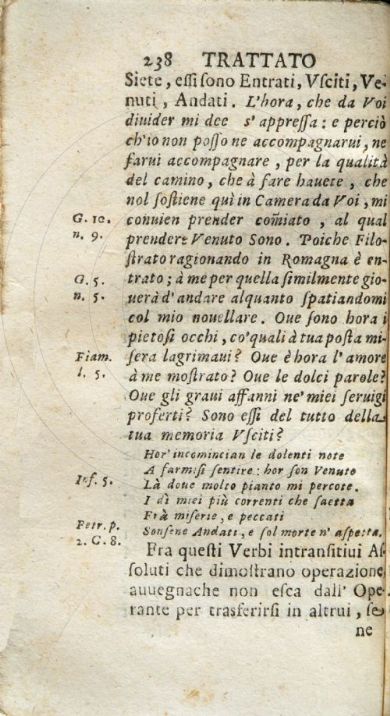 238 TRATTATO
Siete, eſſi ſono Entrati, Vſciti, Ve-
nuti, Andati. L'hora, che da Voi
diuider mi dee s'appreſſa: e perciò
ch'io non poſſo ne accompagnarui, ne
farui accompagnare, per la qualità
del camino, che à fare hauete, che
nol ſoſtiene quì in Camera da Voi, mi
G. 10. conuien prender com̃iato, al qual
n. 9. prendere Venuto Sono. Poiche Filo-
ſtrato ragionando in Romagna è en-
G. 5. trato; à me per quella ſimilmente gio-
n. 5. uerà d'andare alquanto ſpatiandomi
col mio nouellare. Oue ſono hora i
pietoſi occhi, co'quali à tua poſta mi-
Fiam. ſera lagrimaui? Oue è hora l'amore
l. 5. à me moſtrato? Oue le dolci parole?
Oue gli graui affanni ne' miei ſeruigi
proferti? Sono eſſi del tutto della
tua memoria Vſciti?
Hor' incomincian le dolenti note
A farmiſi ſentire: hor ſon Venuto
Inf. 5. Là doue molto pianto mi percote.
I dì miei più correnti che ſaetta
Frà miſerie, e peccati
Petr. p. Sonſene Andati, e ſol morte n' aſpetta.
2. C. 8. Fra queſti Verbi intranſitiui Aſ-
ſoluti che dimoſtrano operazione,
auuegnache non eſca dall' Ope-
rante per trasferirſi in altrui, ſe
ne